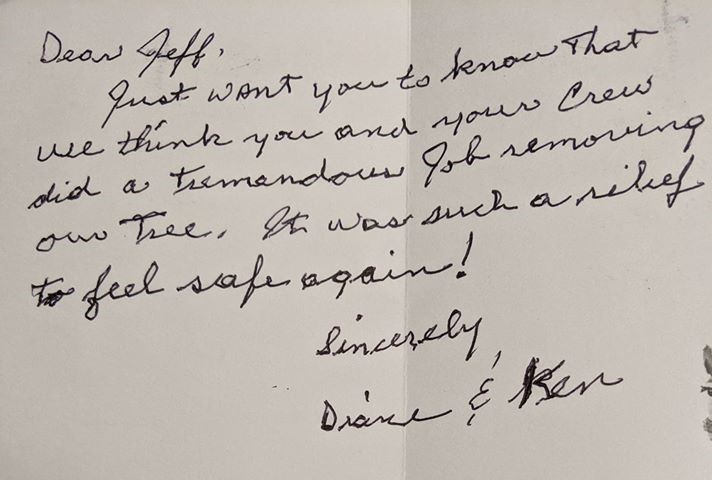 Dear Jeff,
Just want you to know That
we think you and your Crew
did a Tremendous Job removing
our Tree. It was such a relief
to feel safe again!
Sincerely,
Diane & Ken